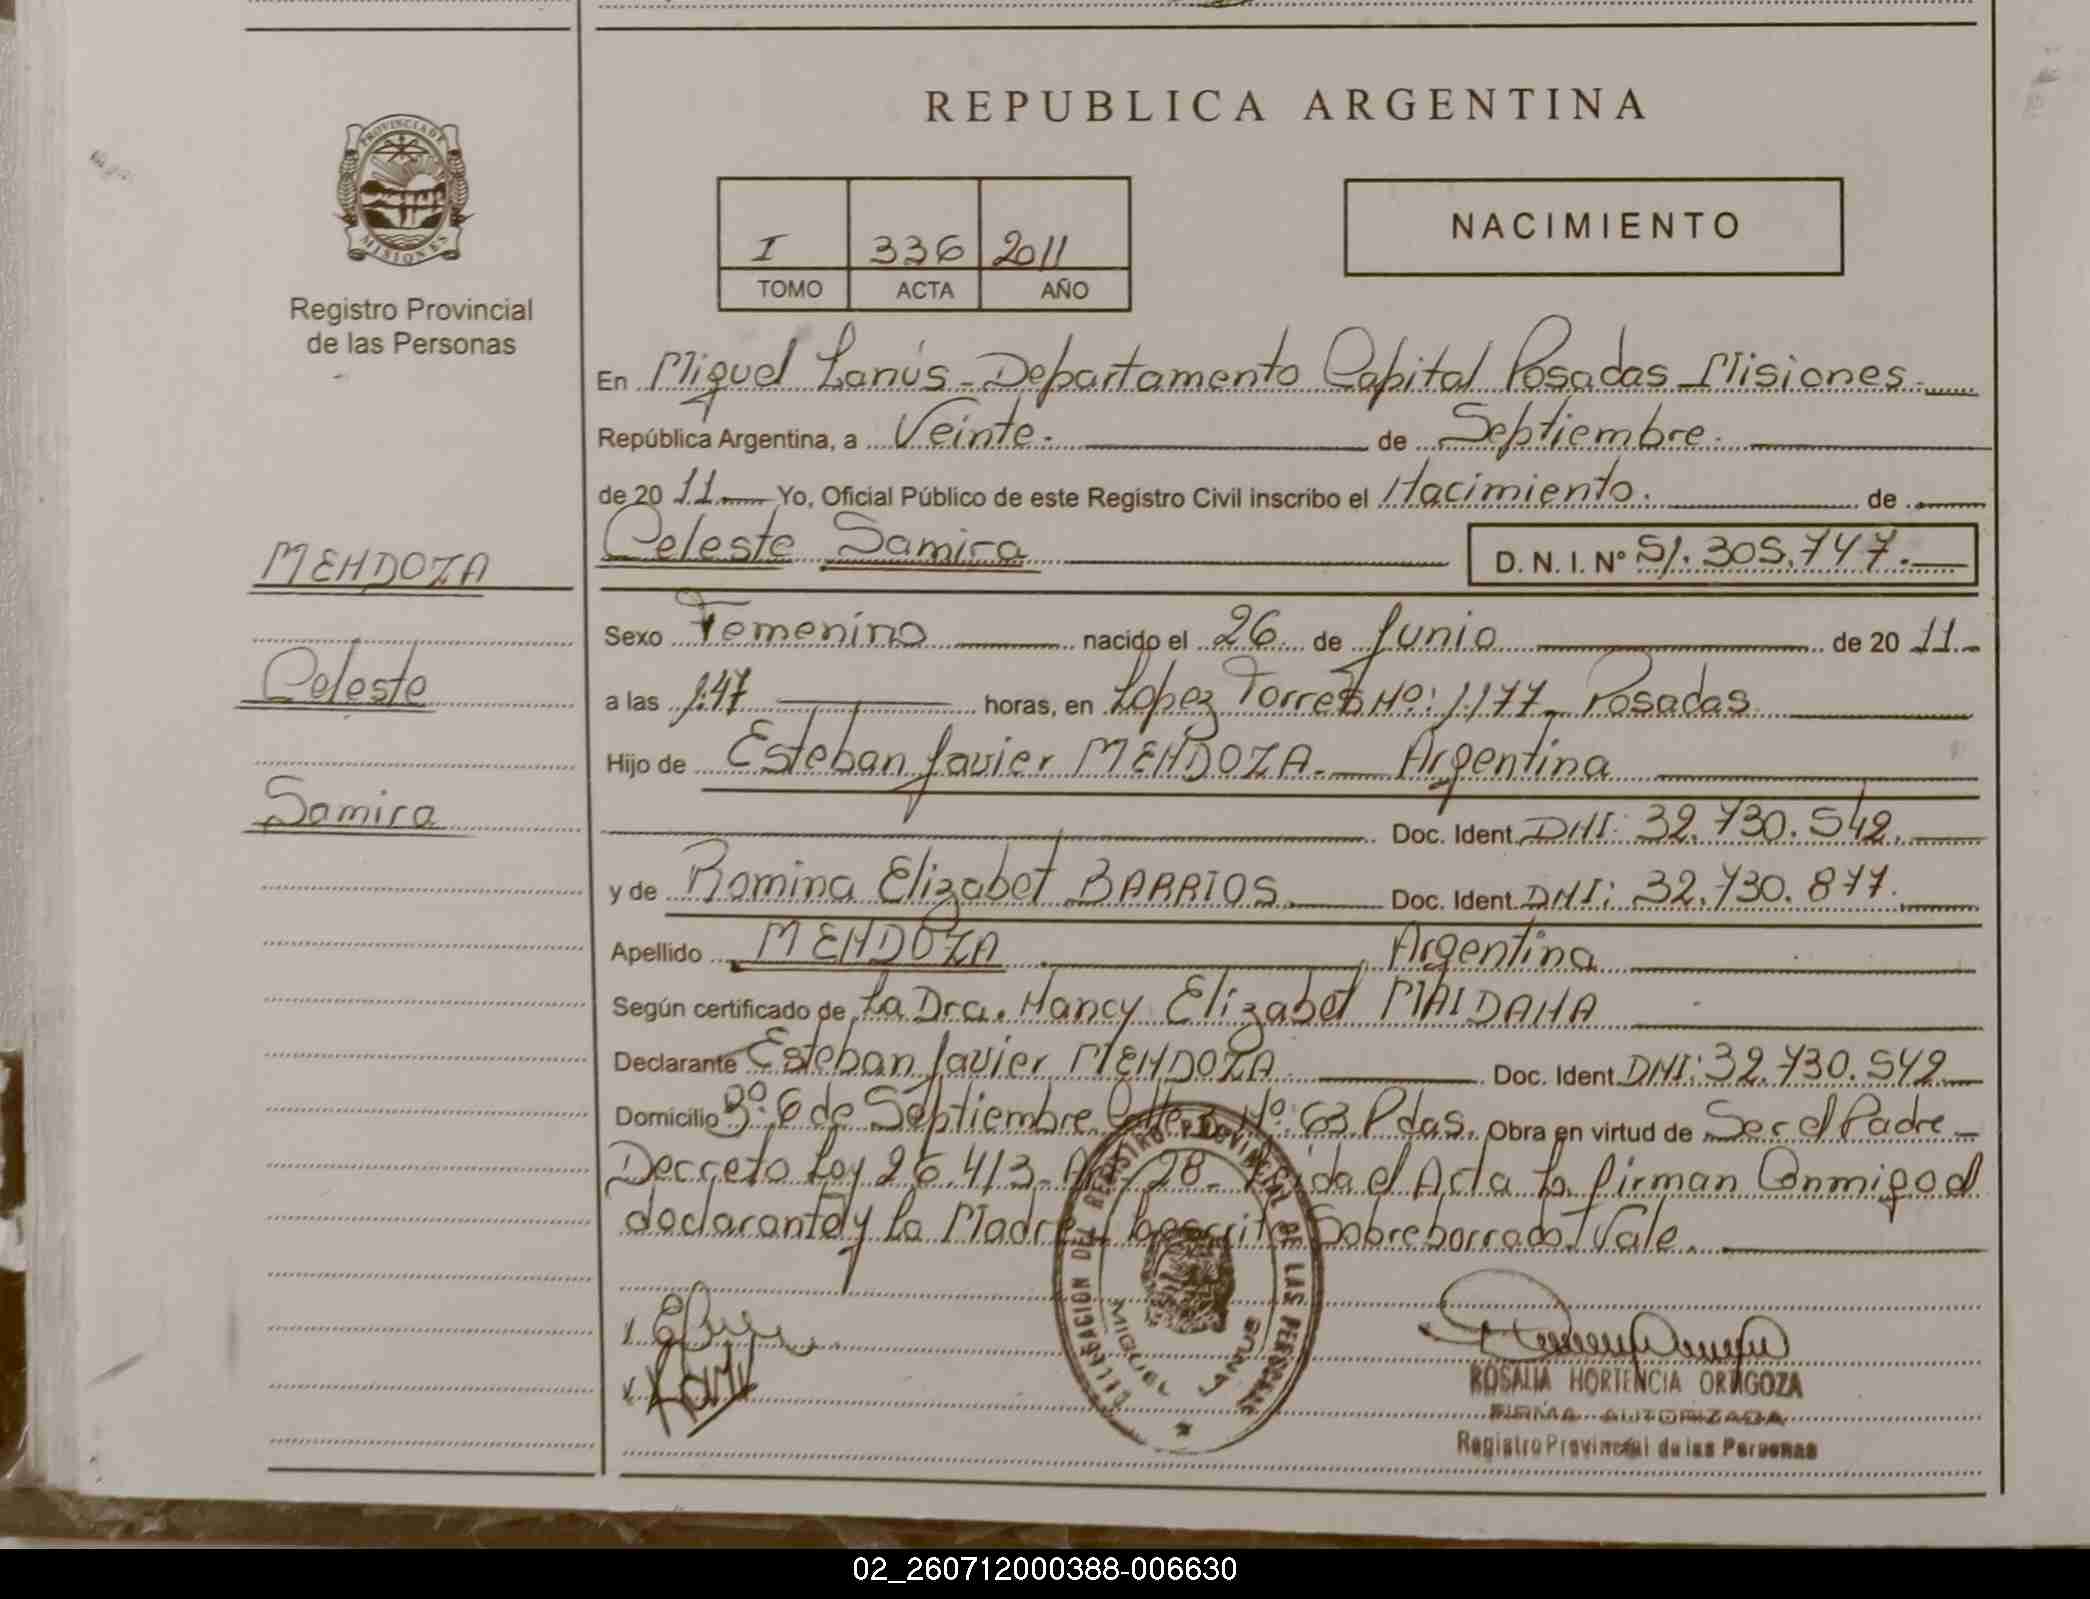 REPUBLICA ARGENTINA
PROVINCIA DE
MISIONES
Registro Provincial
de las Personas
I 336 2011
TOMO ACTA AÑO
NACIMIENTO
En Miguel Lanús - Departamento Capital Posadas Misiones.
República Argentina, a Veinte. de Septiembre.
de 20 11 Yo, Oficial Público de este Registro Civil inscribo el Nacimiento. de
Celeste Samira D. N. I. Nº 51.305.747.
MENDOZA
Celeste
Samira
Sexo Femenino nacido el 26 de Junio de 20 11.
a las 1:47 horas, en Lopez Torres Nº: 1.177 - Posadas
Hijo de Esteban Javier MENDOZA. Argentina
Doc. Ident. DNI: 32.730.542.
y de Romina Elizabet BARRIOS. Doc. Ident. DNI: 32.730.877.
Apellido MENDOZA Argentina
Según certificado de La Dra. Nancy Elizabet MAIDANA
Declarante Esteban Javier MENDOZA Doc. Ident. DNI: 32.730.542
Domicilio Bº. 6 de Septiembre Nº: 63. Pdas. Obra en virtud de Ser el Padre -
Decreto Ley 26.413 - 28 - el Acta la firman Conmigo el
declarante y la Madre Sobreborrado: Vale.
DELEGACION DEL REGISTRO PROVINCIAL DE LAS PERSONAS
MIGUEL LANUS
ROSALIA HORTENCIA ORTIGOZA
FIRMA AUTORIZADA
Registro Provincial de las Personas
02_260712000388-006630